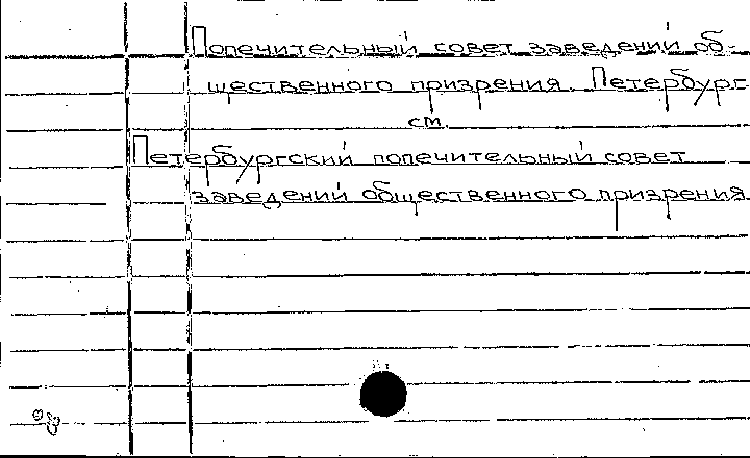 Попечительный совет заведений об-
щественного призрения. Петербург
см.
Петербургский попечительный совет
заведений общественного призрения